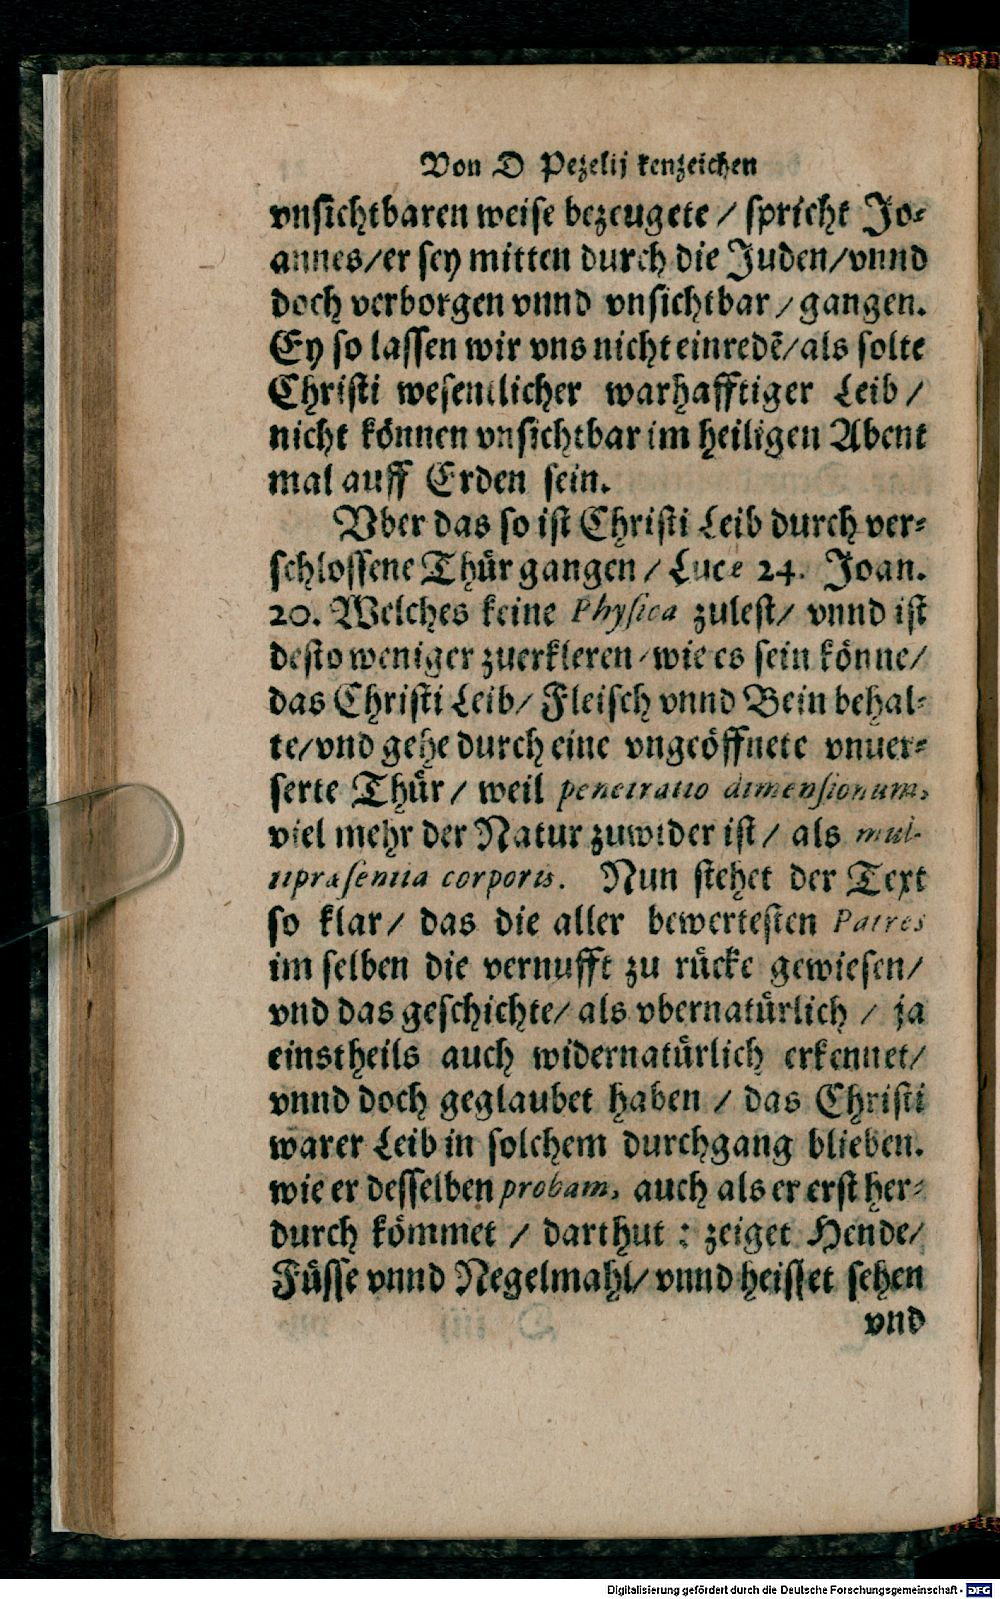 Von D Pezelij kenzeichen
vnsichtbaren weise bezeugete / spricht Jo-
annes/er sey mitten durch die Juden/vnnd
doch verborgen vnnd vnsichtbar / gangen.
Ey so lassen wir vns nicht einredẽ/als solte
Christi wesentlicher warhafftiger Leib /
nicht können vnsichtbar im heiligen Abent
mal auff Erden sein.
Vber das so ist Christi Leib durch ver-
schlossene Thür gangen / Luce 24. Joan.
20. Welches keine Physica zulest/ vnnd ist
desto weniger zuerkleren/wie es sein könne/
das Christi Leib/ Fleisch vnnd Bein behal-
te/vnd gehe durch eine vngeöffnete vnuer-
serte Thür / weil penetratio dimensionum,
viel mehr der Natur zuwider ist / als mul-
tipræsentia corporis. Nun stehet der Text
so klar/ das die aller bewertesten Patres
im selben die vernufft zu rücke gewiesen/
vnd das geschichte/ als vbernatürlich / ja
einstheils auch widernatürlich erkennet/
vnnd doch geglaubet haben / das Christi
warer Leib in solchem durchgang blieben.
wie er desselben probam, auch als er erst her-
durch kömmet / darthut : zeiget Hende/
Füsse vnnd Negelmahl/ vnnd heisset sehen
vnd
Digitalisierung gefördert durch die Deutsche Forschungsgemeinschaft - DFG